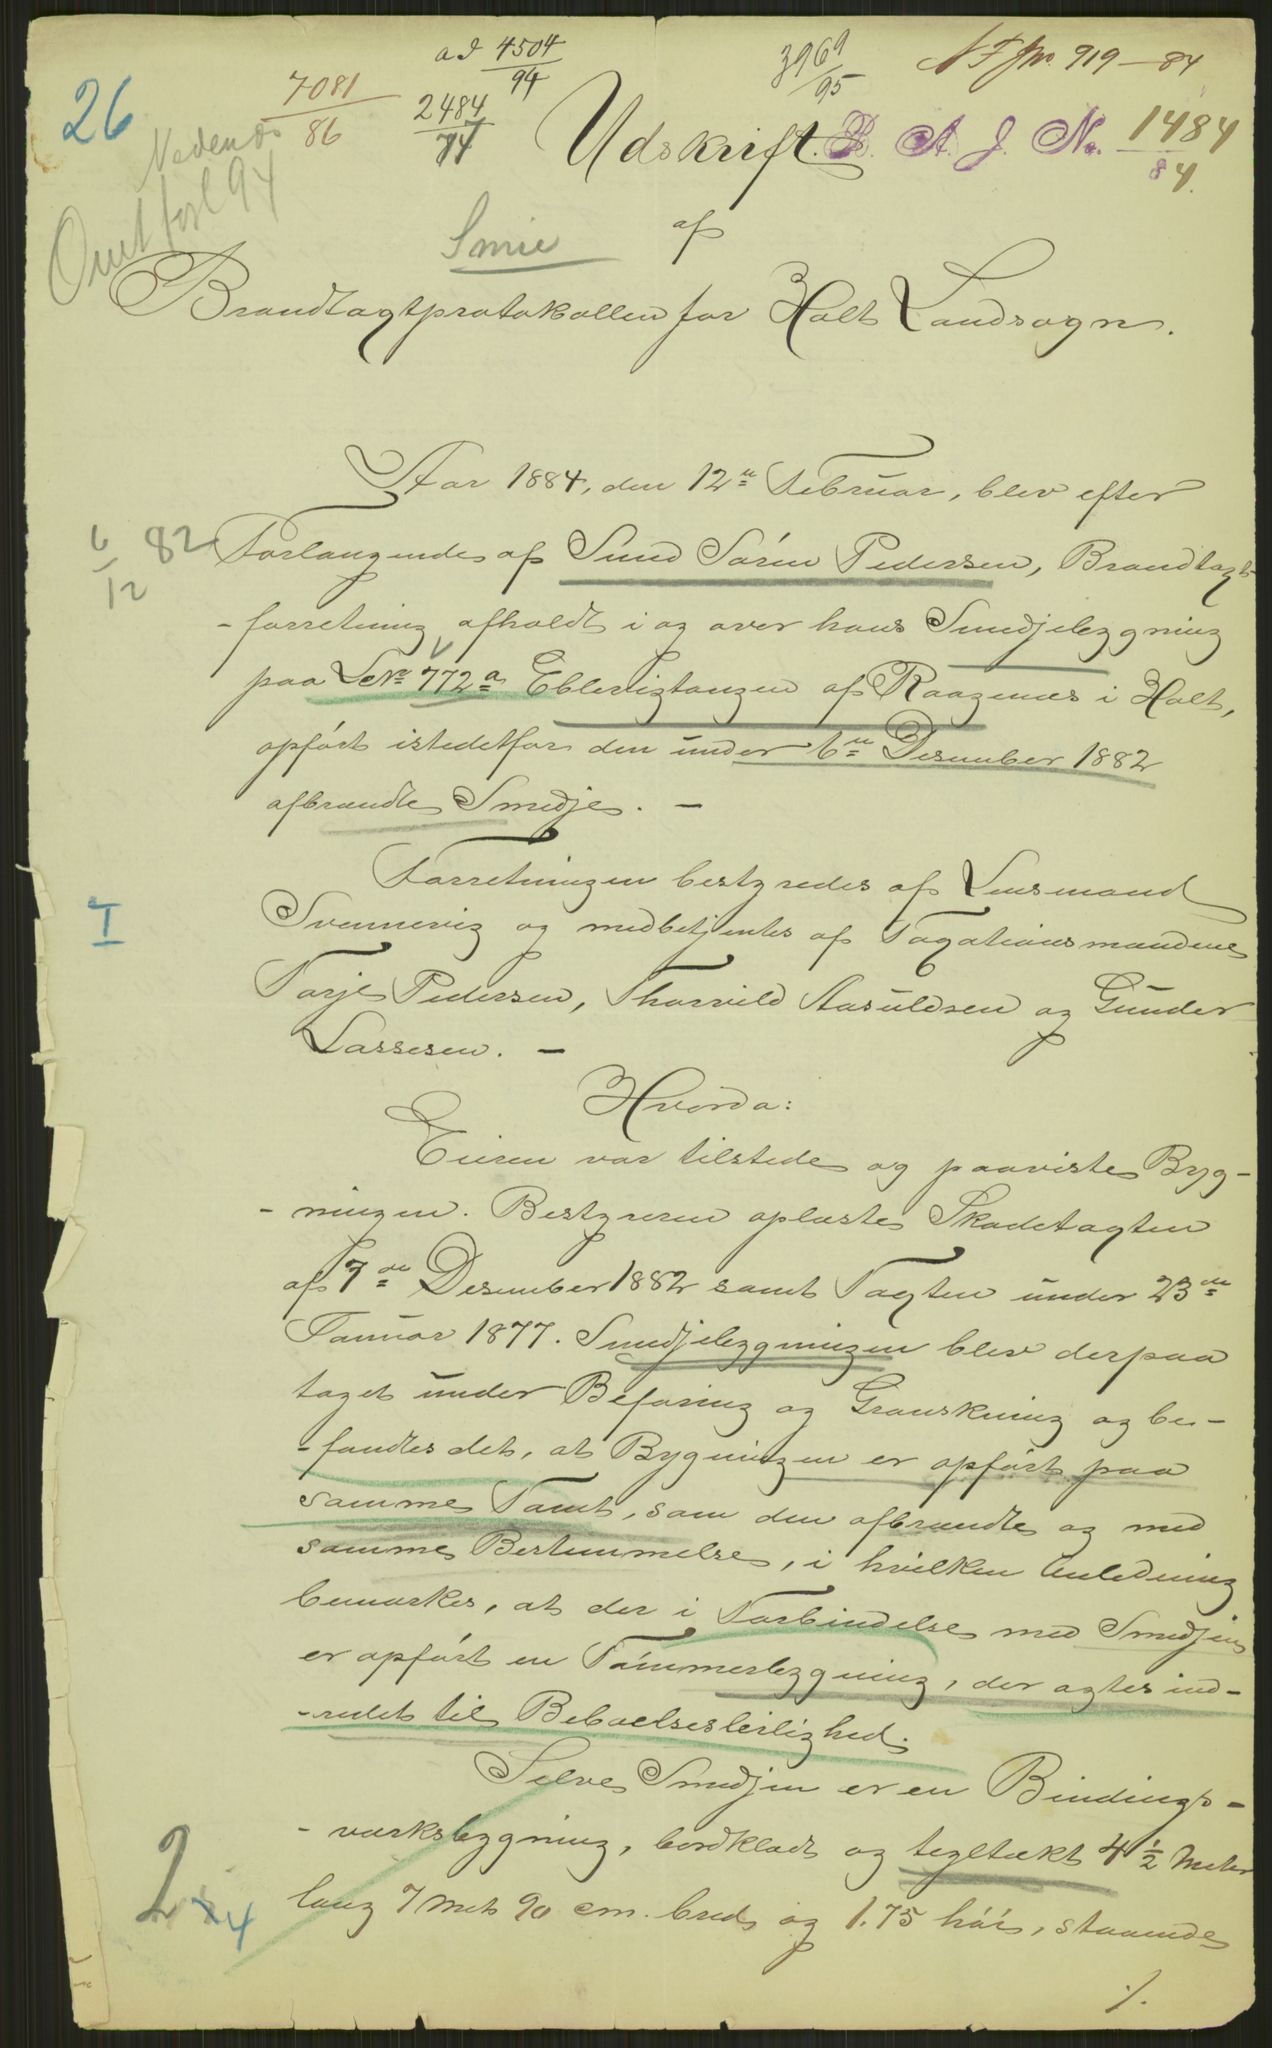 ad 4504/94
3969/95
N F Jno. 919-84
26
7081/86
2484/84
Nedenes
Omtfosl 94
Udskrift.
B. A. J. No. 1484/84.
Smie
af
Brandtagtprotokollen for Holt Landsogn.
Aar 1884, den 12te Februar, blev efter
6/12 82
Forlangende af Smed Sörén Pedersen, Brandtagt-
-forretning afholdt i og over hans Smedjebygning
paa LNo 772a Eblevigtangen af Raagenæs i Holt,
opfört istedetfor den under 6te Desember 1882
afbrændte Smedje. -
Forretningen bestyredes af Lensmand
I
Svennevig og medbetjentes af Taxationsmændene
Tarje Pedersen, Thorvild Aasuldsen og Gunder
Lassesen. -
Hvorda:
Eieren var tilstede og paaviste Byg-
-ningen. Bestyreren oplæste Skadetagten
af 7de Desember 1882 samt Tagten under 23de
Januar 1877. Smedjebygningen blev derpaa
taget under Befaring og Granskning og be-
-fandtes det, at Bygningen er opfört paa
samme Tomt, som den afbrændte og med
samme Bestemmelse, i hvilken Anledning
bemærkes, at der i Forbindelse med Smedjen
er opfört en Tömmerbygning, der agtes ind-
-redet til Beboelsesleilighed.
Selve Smedjen er en Bindings-
-værksbygning, bordklædt og tegltækt 4 1/2 Meter
2 x 4
lang 7 Met 90 cm. bred og 1.75 höi, staaende
./.